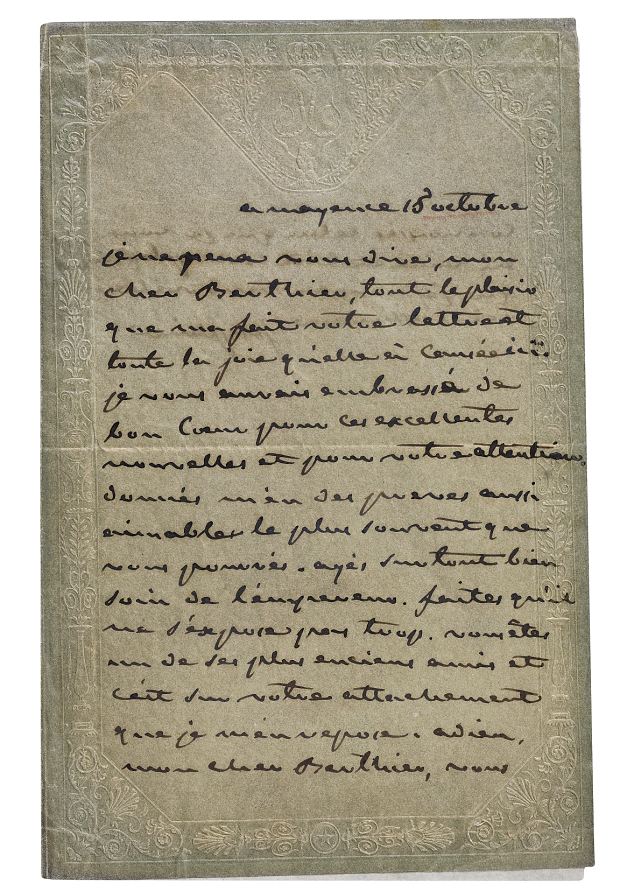 a mayence 18 octobre
je ne peux vous dire, mon
cher Berthier, tout le plaisir
que m'a fait votre lettre et
toute la joie qu'elle à causée ici.
je vous aurais embrassé de
bon Cœur pour ces excellentes
nouvelles et pour votre attention.
donnés m'en des preves aussi
aimables le plus souvent que
vous pourrés. ayés surtout bien
soin de l'empereur. faites qu'il
ne s'expose pas trop. vous êtes
un de ses plus anciens amis et
c'est sur votre attachement
que je m'en repose. adieu,
mon cher Berthier, vous